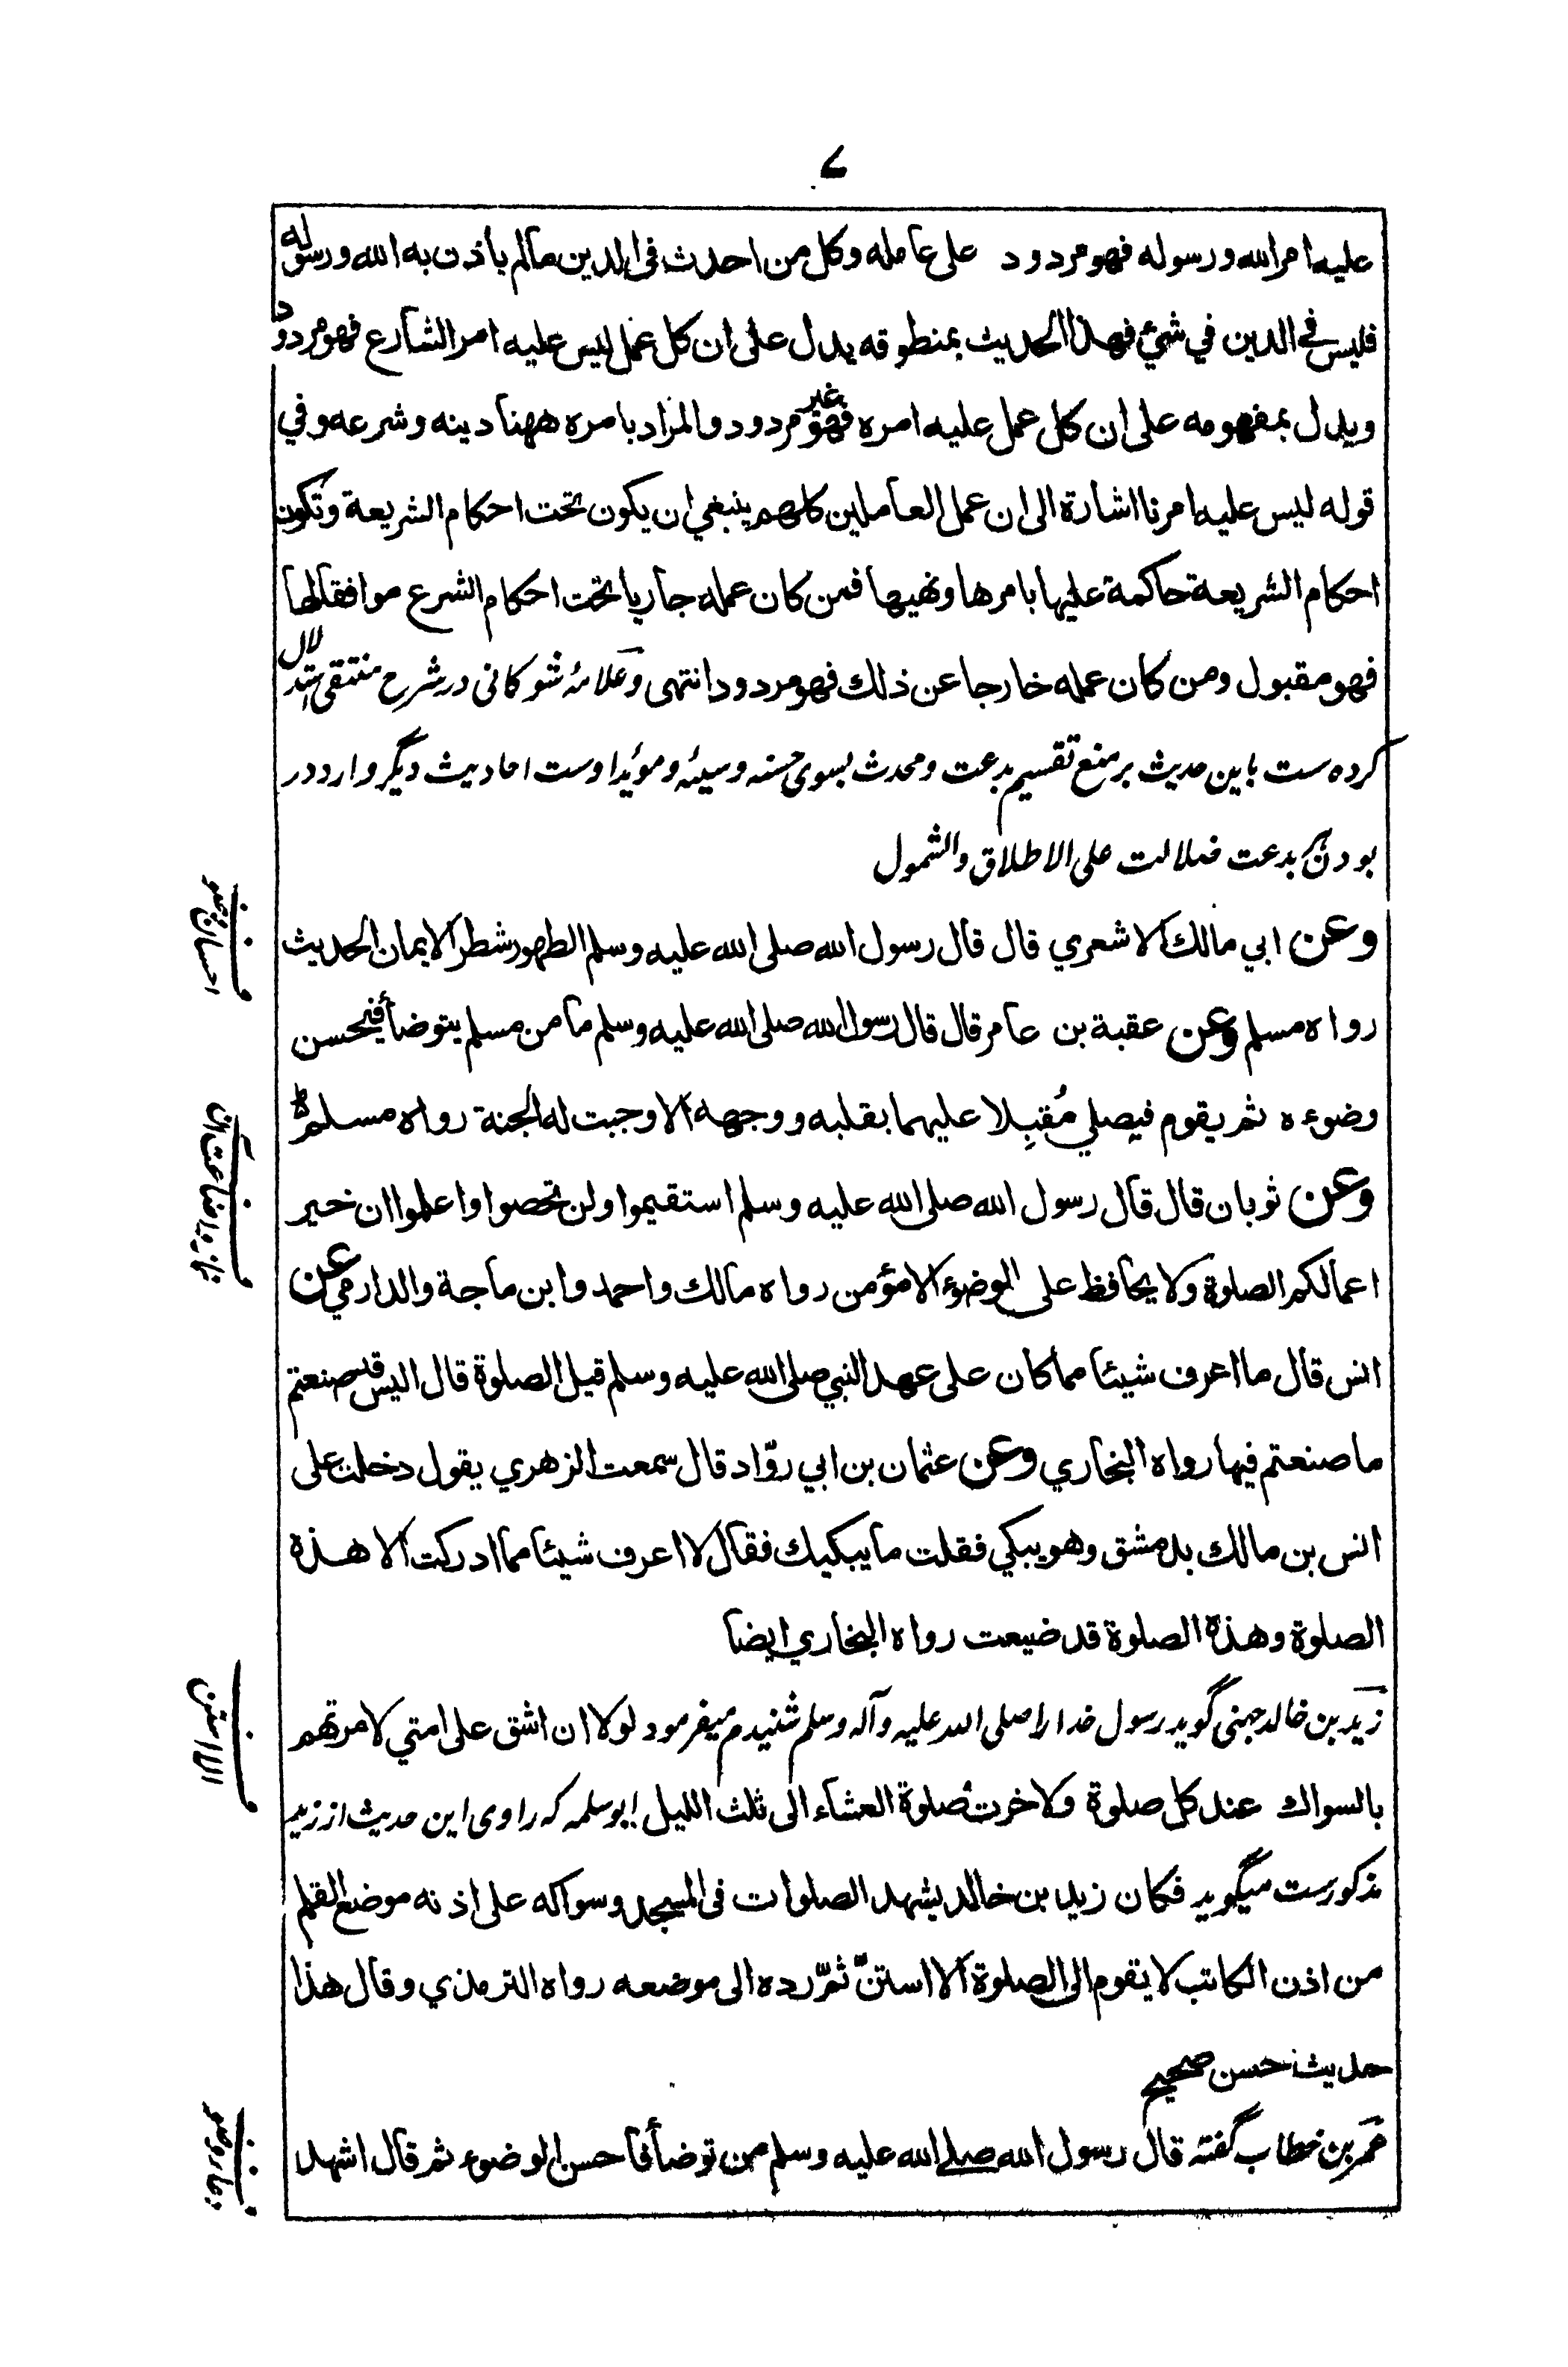 ۷
عليه امر الله ورسوله فهو مردود على عامله وكل من احدث فى الدين مالم يأذن به الله ورسوله
فليس فى الدين في شئ فهذا الحديث بمنطوقه يدل على ان كل عمل ليس عليه امر الشارع فهو مردود
ويدل بمفهومه على ان كل عمل عليه امره فهو غير مردود والمراد بامره ههنا دينه وشرعه وفي
قوله ليس عليه امرنا اشارة الى ان عمل العاملين كلهم ينبغي ان يكون تحت احكام الشريعة وتكون
احكام الشريعة حاكمة عليها بامرها ونهيها فمن كان عمله جاريا تحت احكام الشرع موافقا لها
فهو مقبول ومن كان عمله خارجا عن ذلك فهو مردود انتهى وعلامۂ شوكانى در شرح منتقى استدلال
كرده ست باين حديث بر منع تقسيم بدعت ومحدث بسوى حسنه وسيئه ومؤيد اوست احاديث ديگر وارد در
بودن هر بدعت ضلالت على الاطلاق والشمول
وعن ابي مالك الاشعري قال قال رسول الله صلى الله عليه وسلم الطهور شطر الايمان الحديث
رواه مسلم وعن عقبة بن عامر قال قال رسول الله صلى الله عليه وسلم ما من مسلم يتوضأ فيحسن
وضوءه ثم يقوم فيصلي مُقبِلا عليهما بقلبه ووجهه الا وجبت له الجنة رواه مسلم
وعن ثوبان قال قال رسول الله صلى الله عليه وسلم استقيموا ولن تحصوا واعلموا ان خير
اعمالكم الصلوة ولا يحافظ على الوضوء الا مؤمن رواه مالك واحمد وابن ماجة والدارمي عن
انس قال ما اعرف شيئا مما كان على عهد النبي صلى الله عليه وسلم قيل الصلوة قال اليس قد صنعتم
ما صنعتم فيها رواه البخاري وعن عثمان بن ابي روّاد قال سمعت الزهري يقول دخلت على
انس بن مالك بدمشق وهو يبكي فقلت ما يبكيك فقال لا اعرف شيئا مما ادركت الا هذه
الصلوة وهذه الصلوة قد ضيعت رواه البخاري ايضا
زيد بن خالد جهنى گويد رسول خدا را صلى الله عليه وآله وسلم شنيدم ميفرمود لولا ان اشق على امتي لامرتهم
بالسواك عند كل صلوة ولاخرت صلوة العشاء الى ثلث الليل ابو سلمه كه راوى اين حديث از زيد
مذكورست ميگويد فكان زيد بن خالد يشهد الصلوات فى المسجد وسواكه على اذنه موضع القلم
من اذن الكاتب لا يقوم الى الصلوة الا استنّ ثمّ رده الى موضعه رواه الترمذي وقال هذا
حديث حسن صحيح
عمر بن خطاب گفته قال رسول الله صلى الله عليه وسلم من توضأ فاحسن الوضوء ثم قال اشهد